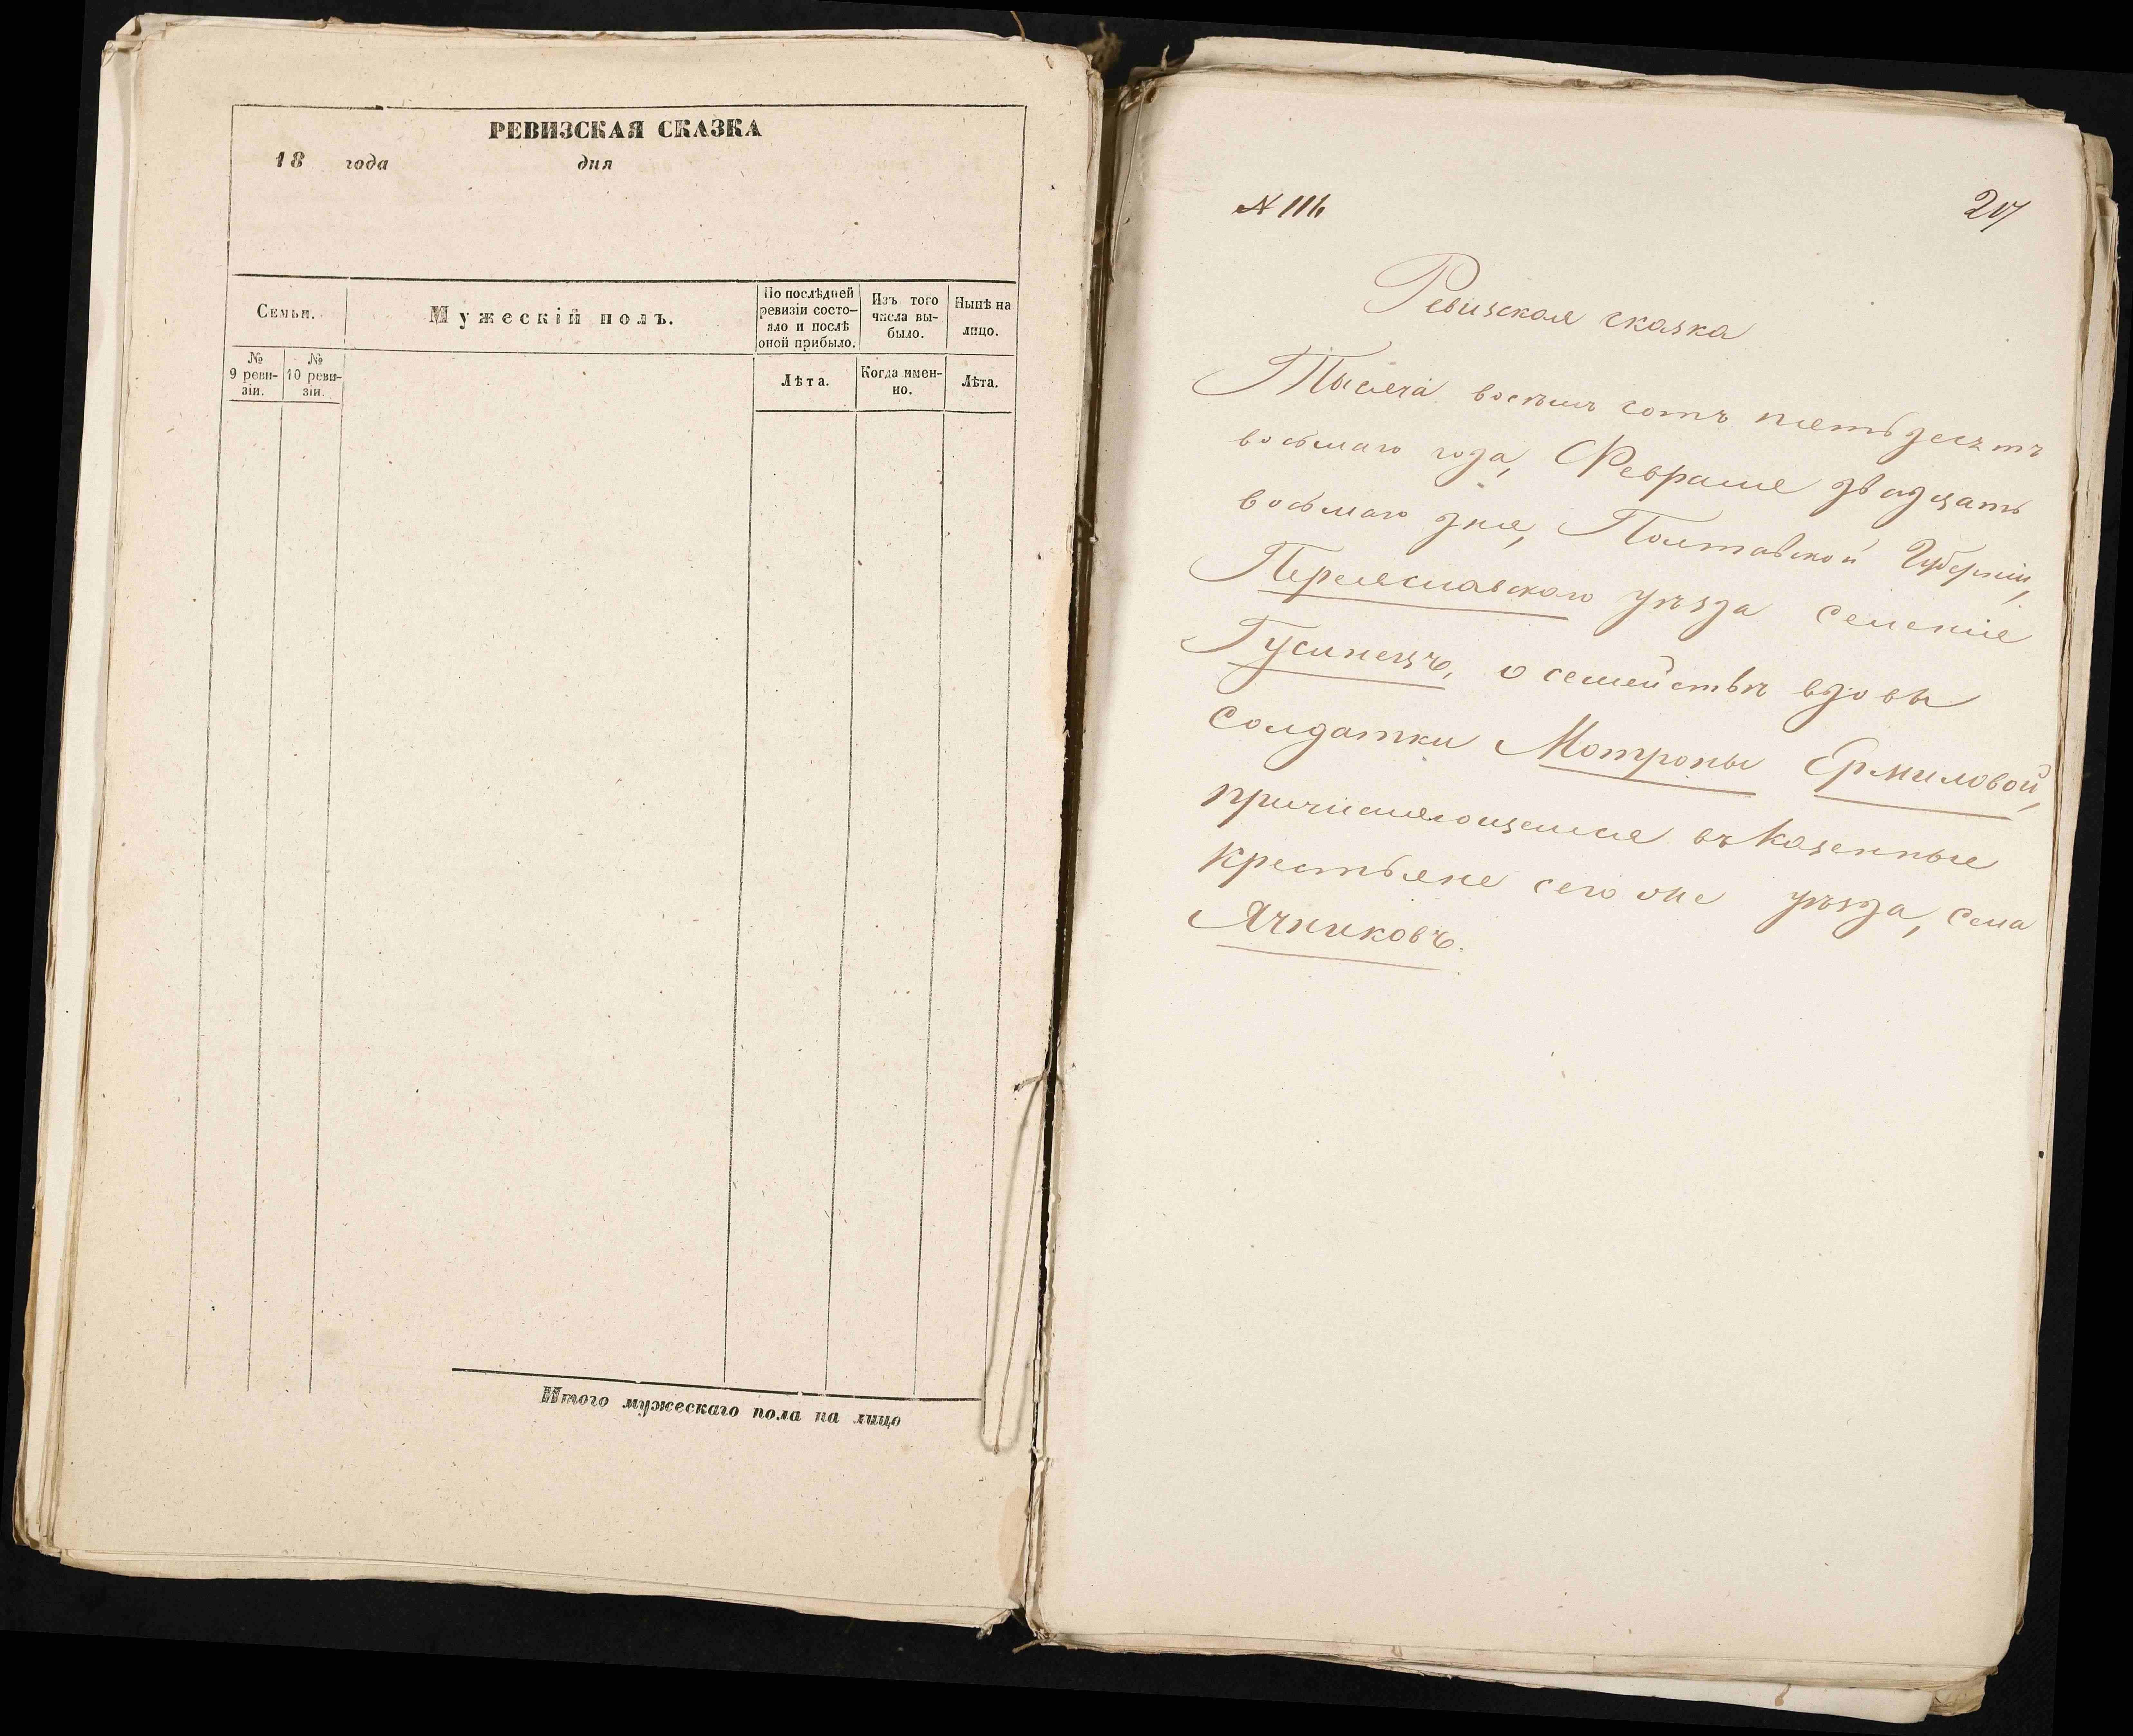 РЕВИЗСКАЯ СКАЗКА
18 года дня
Семьи.
№ 9 реви-
зіи.
№ 10 реви-
зіи.
Мужескій полъ.
По послѣдней
ревизіи состо-
яло и послѣ
оной прибыло.
Лѣта.
Изъ того
числа вы-
было.
Когда имен-
но.
Нынѣ на
лицо.
Лѣта.
Итого мужескаго пола на лицо
№ 116
217
Ревизская сказка
Тысяча восемь сотъ пятьдесятъ
восьмаго года, Февраля двадцать
восьмаго дня, Полтавской Губерніи,
Переяславскаго уѣзда селенія
Гусинецъ, о семействѣ вдовы
солдатки Мотроны Ермиловой,
причисляющемся въ казенные
крестьяне сего же уѣзда, села
Ячниковъ.